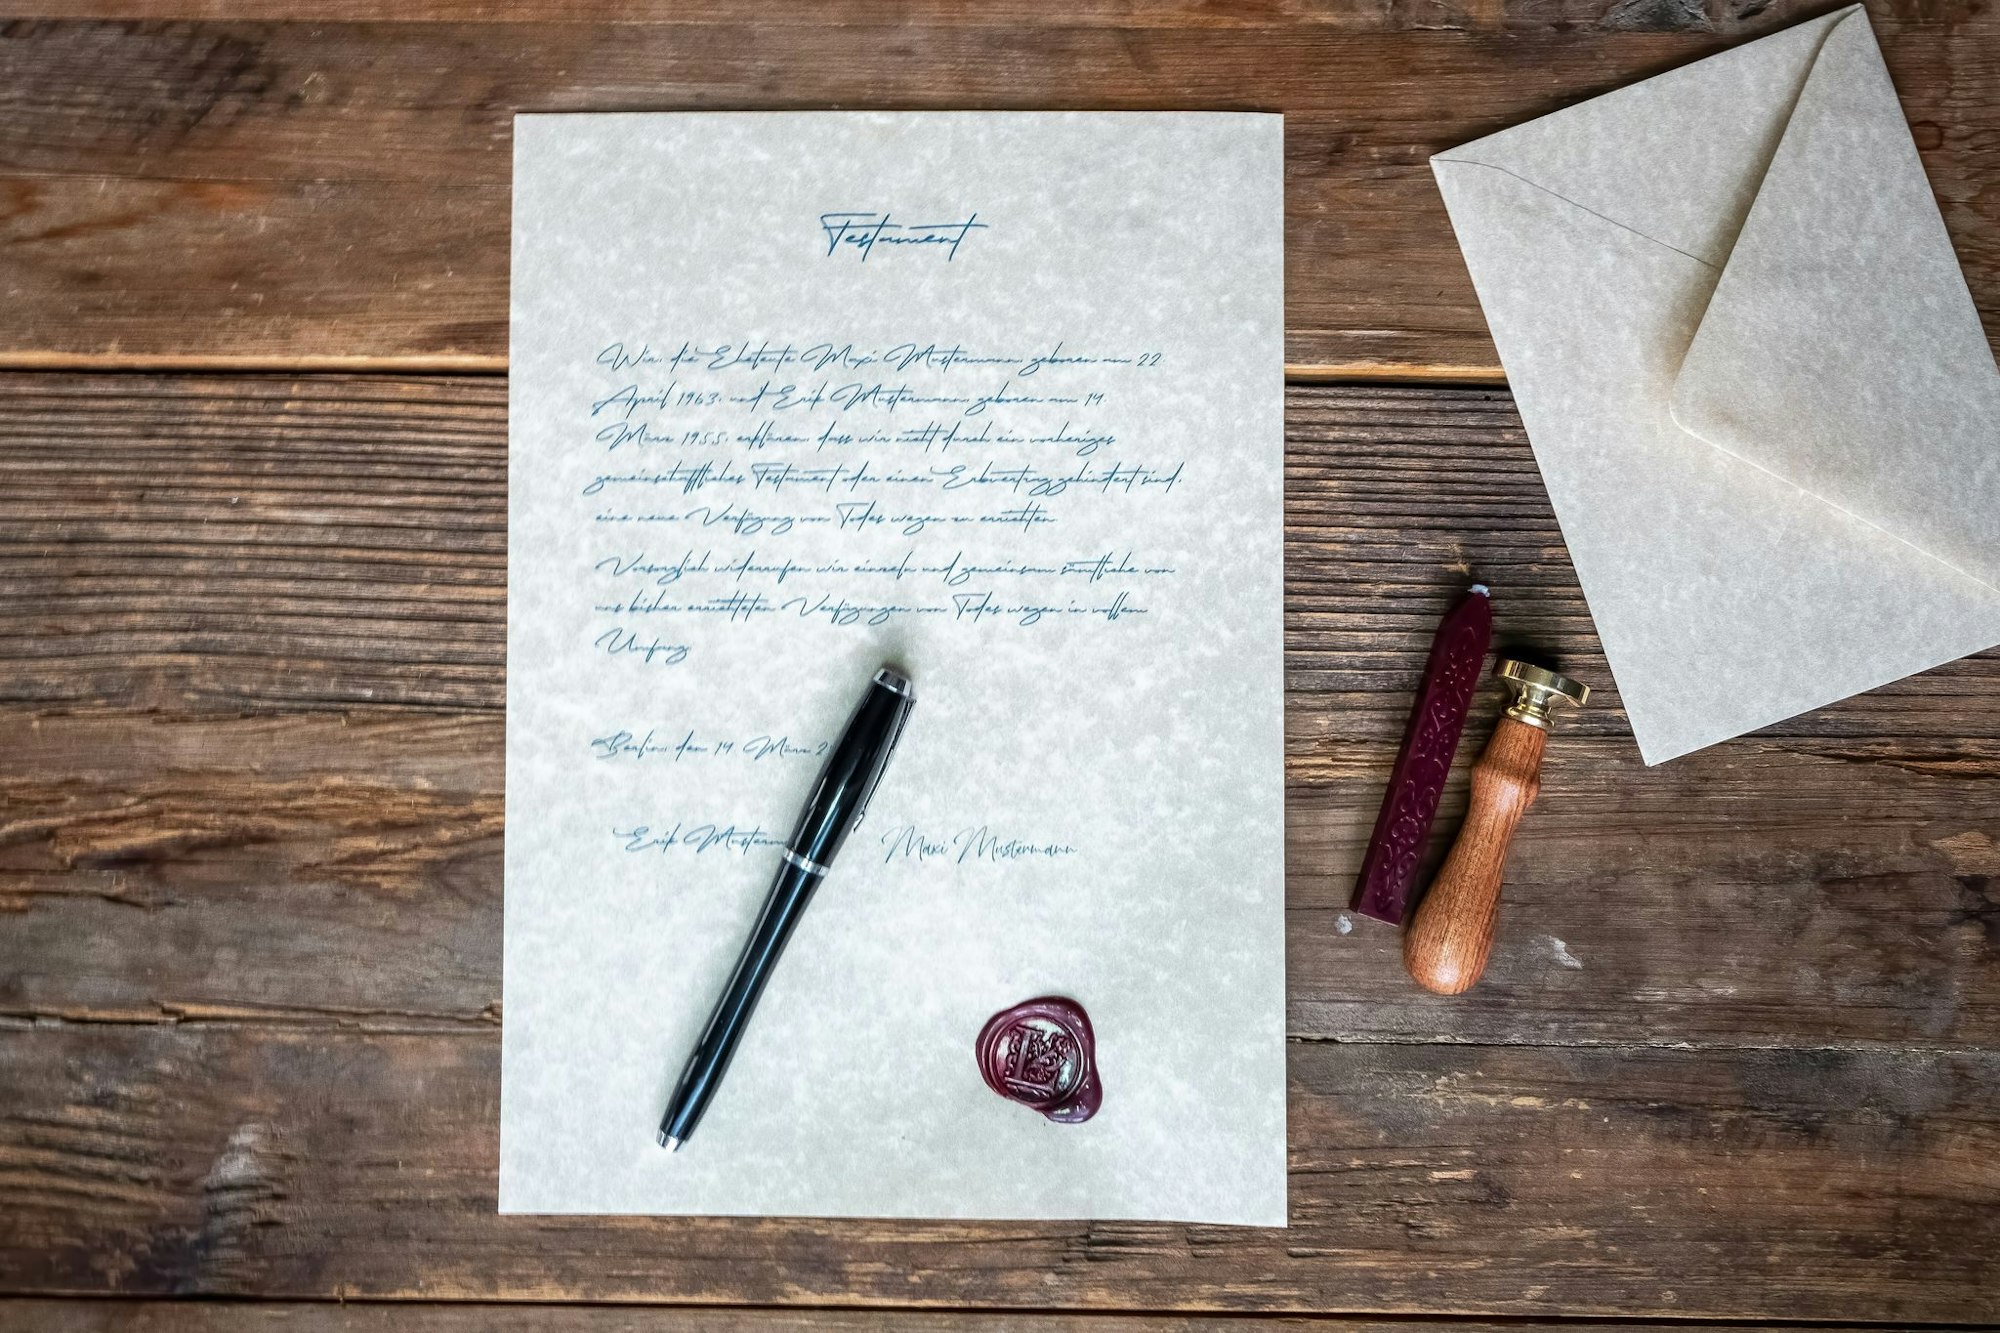 Testament
Wir, die Eheleute Maxi Mustermann, geboren am 22.
April 1963, und Erik Mustermann, geboren am 14.
März 1955, erklären, dass wir nicht durch ein vorheriges
gemeinschaftliches Testament oder einen Erbvertrag gehindert sind,
eine neue Verfügung von Todes wegen zu errichten.
Vorsorglich widerrufen wir einzeln und gemeinsam sämtliche von
uns bisher errichteten Verfügungen von Todes wegen in vollem
Umfang.
Berlin, den 14. März 2
Erik Musterm
Maxi Mustermann